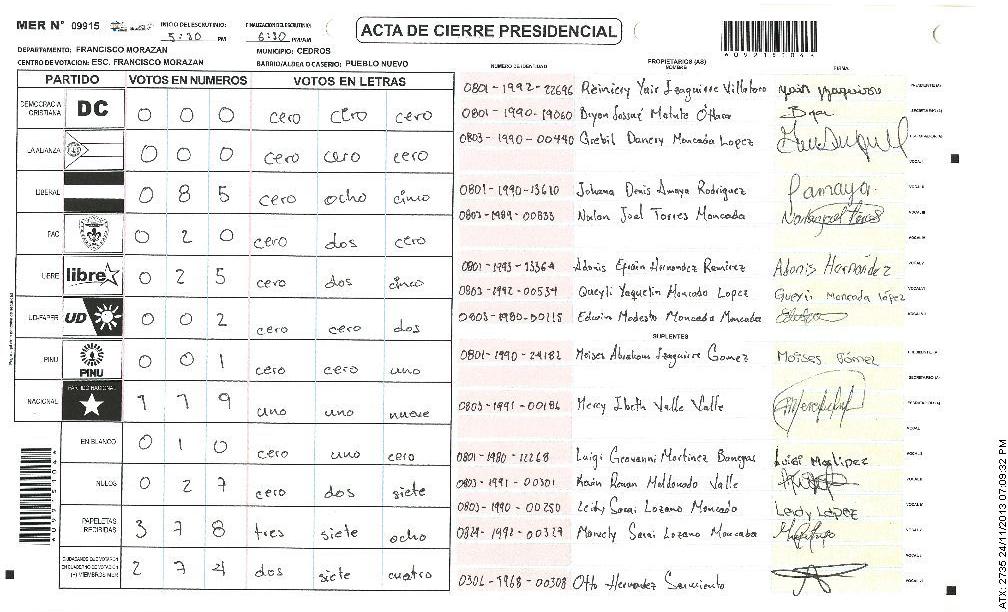 MER N° 09915 INICIO DEL ESCRUTINIO 5:30 PM FINALIZACION DEL ESCRUTINIO 6:30 PM/AM
ACTA DE CIERRE PRESIDENCIAL
DEPARTAMENTO: FRANCISCO MORAZAN MUNICIPIO: CEDROS
CENTRO DE VOTACION: ESC. FRANCISCO MORAZAN BARRIO/ALDEA O CASERIO: PUEBLO NUEVO
PARTIDO VOTOS EN NUMEROS VOTOS EN LETRAS
DEMOCRACIA CRISTIANA DC 0 0 0 cero cero cero
LA ALIANZA 0 0 0 cero cero cero
LIBERAL 0 8 5 cero ocho cinco
PAC 0 2 0 cero dos cero
LIBRE libre 0 2 5 cero dos cinco
UD-FAPER UD 0 0 2 cero cero dos
PINU PINU 0 0 1 cero cero uno
NACIONAL PARTIDO NACIONAL 1 1 9 uno uno nueve
EN BLANCO 0 1 0 cero uno cero
NULOS 0 2 7 cero dos siete
PAPELETAS RECIBIDAS 3 7 8 tres siete ocho
CIUDADANOS QUE VOTARON EN CUADERNO DE VOTACION (+) MIEMBROS MER 2 7 4 dos siete cuatro
NUMERO DE IDENTIDAD PROPIETARIOS (AS) NOMBRE FIRMA
0801-1992-22696 Yair Izaguirre PRESIDENTE (A)
0801-1990-19060 Bryon Josué Matute O'Hara SECRETARIO (A)
0803-1990-00440 Grebil Danery Moncada Lopez
0801-1990-13610 Johana Denis Amaya Rodriguez
0803-1989-00833 Joel Torres Moncada
0801-1993-13364 Adonis Efraín Hernandez Ramirez Adonis Hernández
0803-1992-00534 Queyli Yaquelin Moncada Lopez Queyli Moncada López
0803-1980-00215 Edwin Modesto Moncada Moncada
SUPLENTES
0801-1990-24182 Moises Abraham Izaguirre Gomez Moises Gómez
0803-1991-00186 Mercy Ibeth Valle Valle
0801-1980-12268 Luigi Geovanni Martinez Banegas
0803-1991-00301 Kevin Ronan Maldonado Valle
0803-1990-00250 Leidy Sarai Lozano Moncada Leidy Lopez
0824-1992-00327 Sarai Lozano Moncada
0306-1968-00308 Otto Hernandez Sarmiento
ATX: 2735 24/11/2013 07:09:32 PM